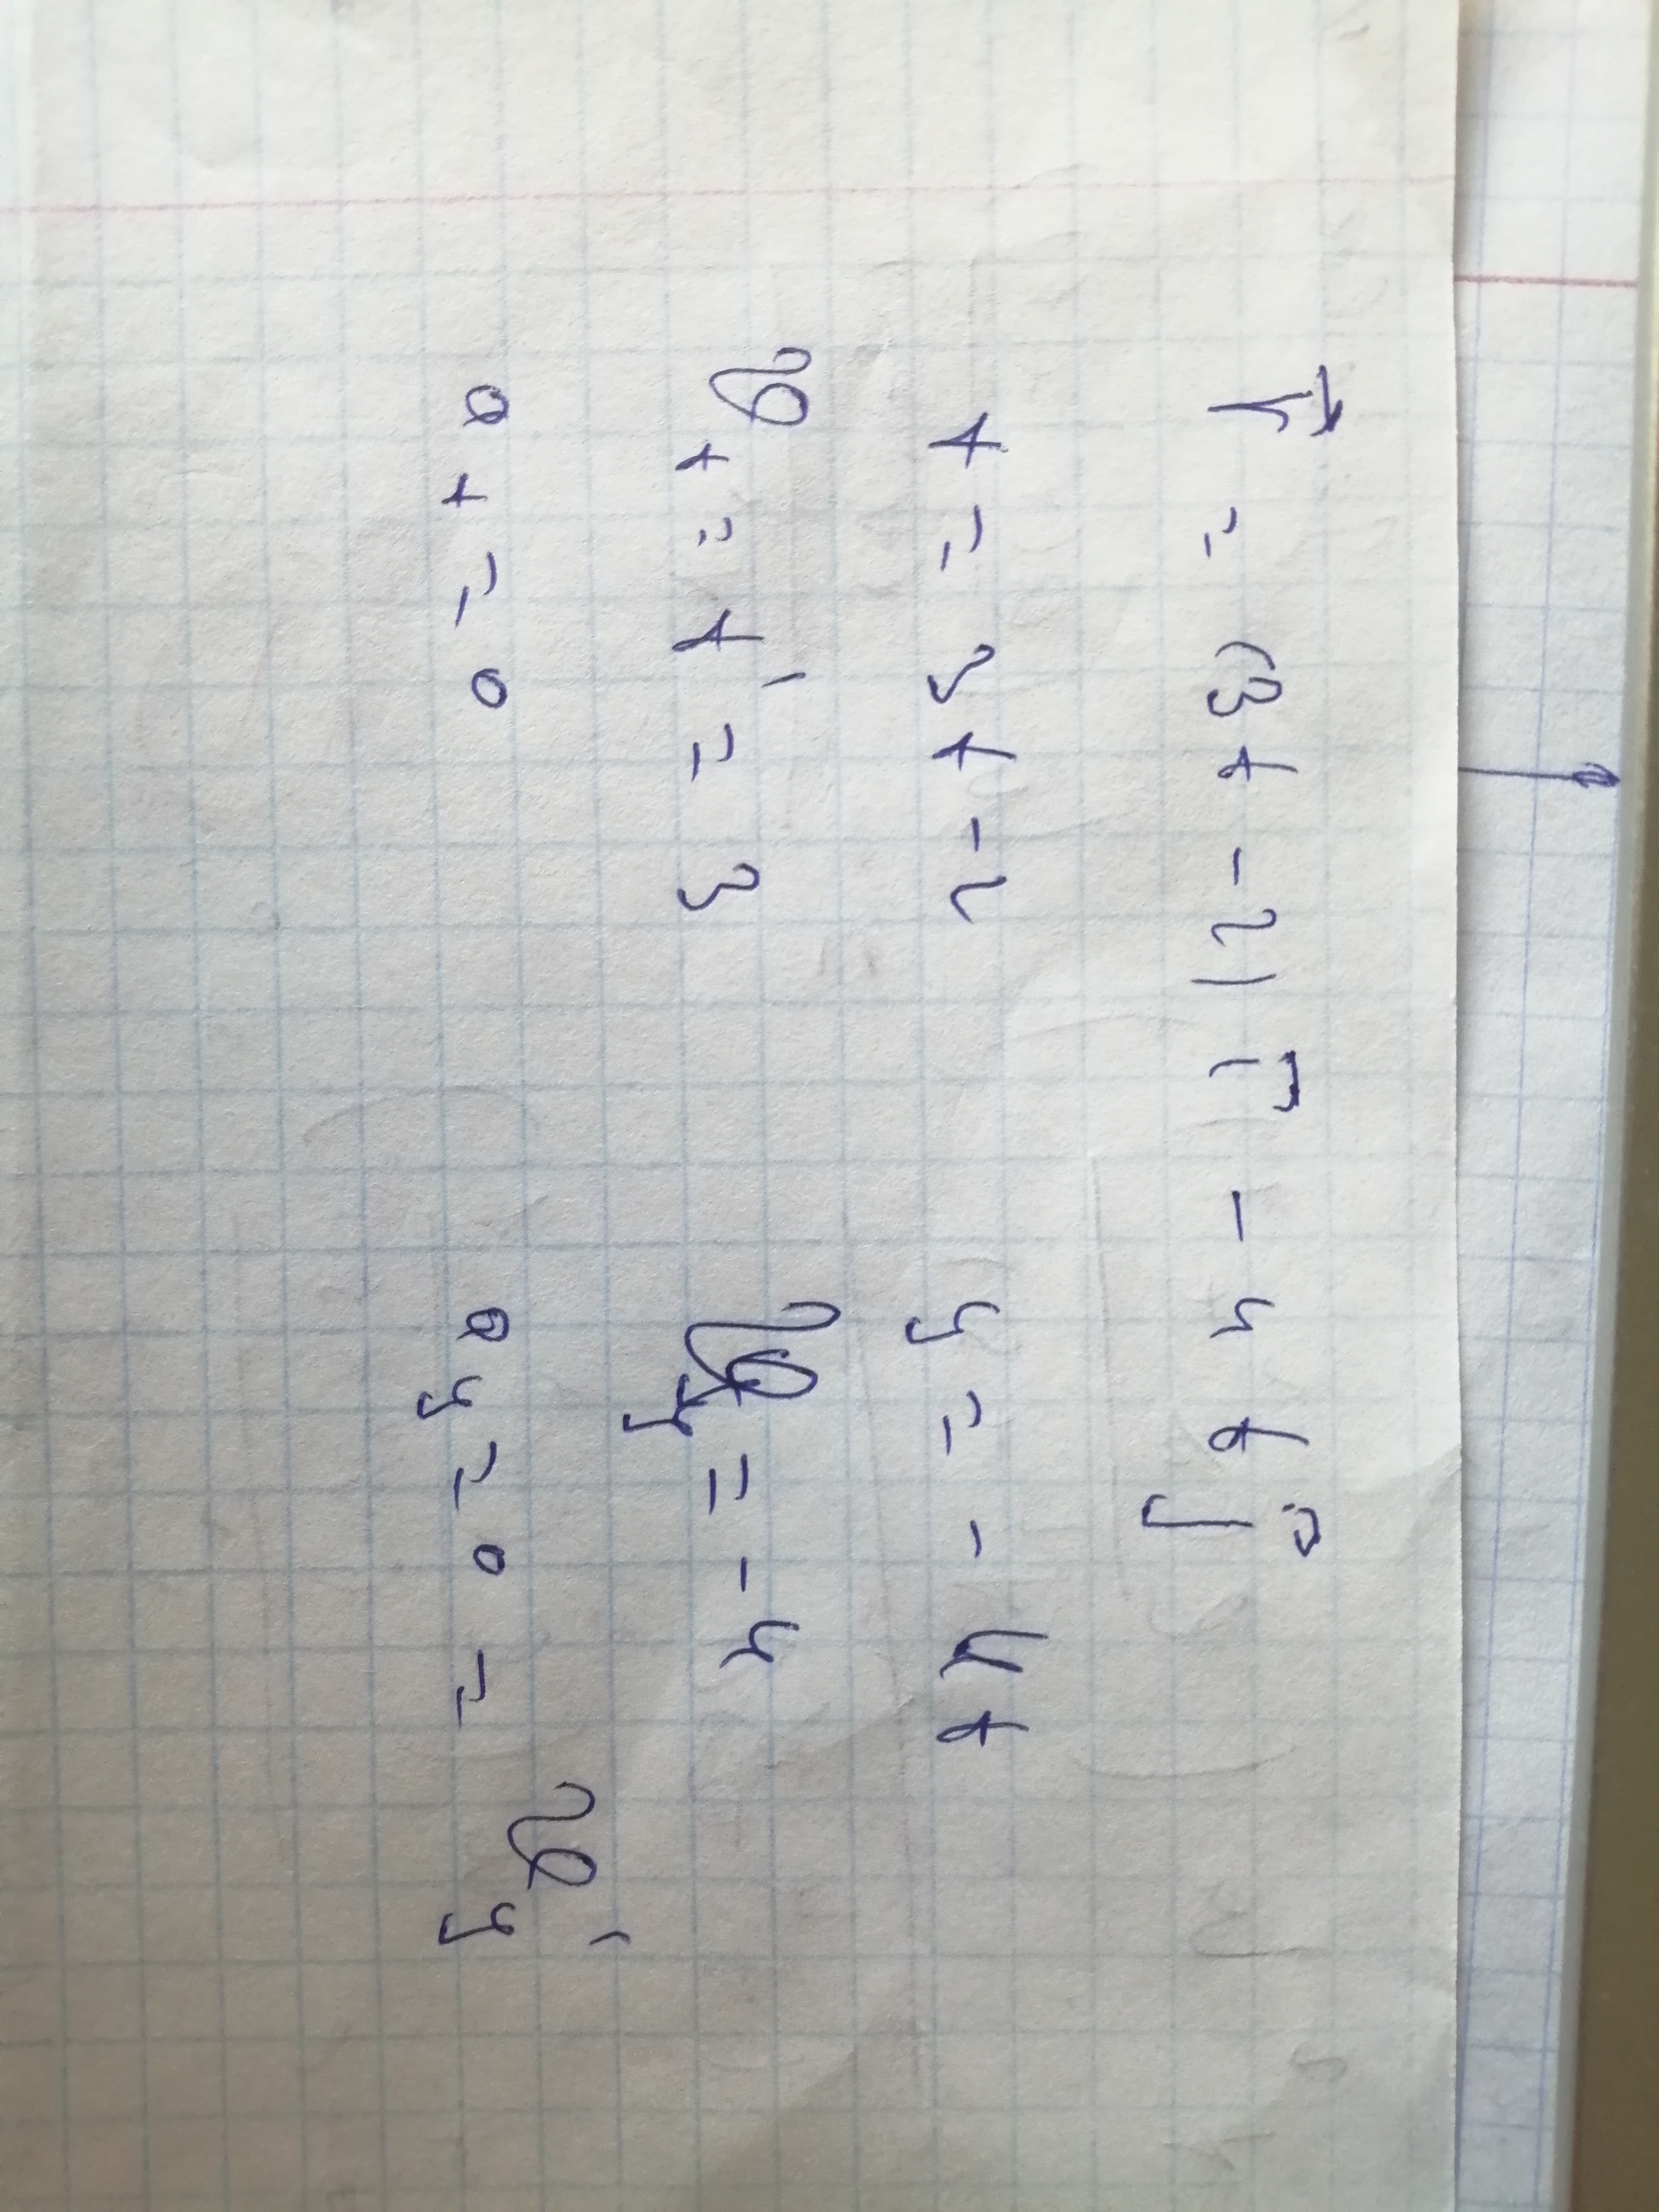 r⃗ = (3t - 2) i⃗ - 4 t j⃗
x = 3t - 2 y = - 4t
v_x = x' = 3 v_y = - 4
a_x = 0 a_y = 0 = v_y'